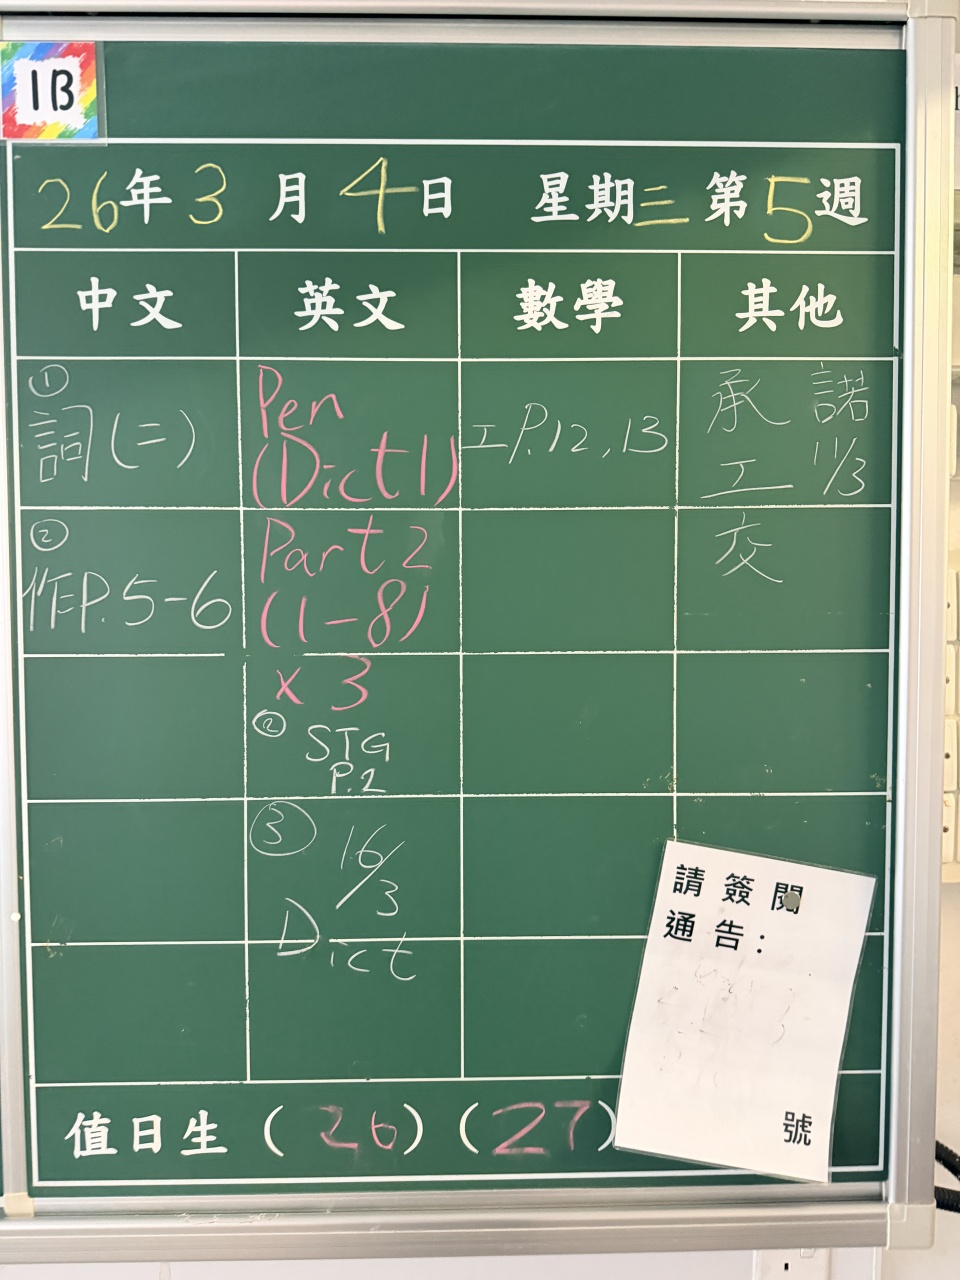 1B
26年3月4日 星期三 第5週
中文 英文 數學 其他
①
詞(二)
②
作P.5-6
Pen
(Dict 1)
Part 2
(1-8)
x 3
②
STG
P.2
③
16/3
Dict
工P.12,13
承諾
工 11/3
交
請簽閱
通告:
號
值日生 (26) (27)